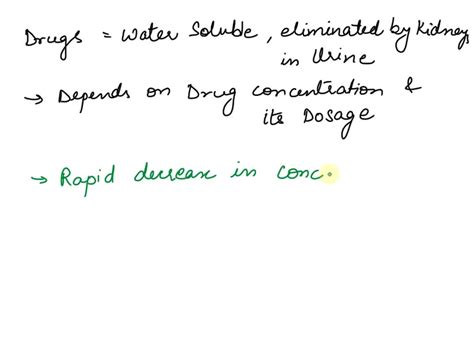 Drugs = Water Soluble, eliminated by Kidney
in Urine
→ Depends on Drug concentration &
its Dosage
→ Rapid decrease in conc.